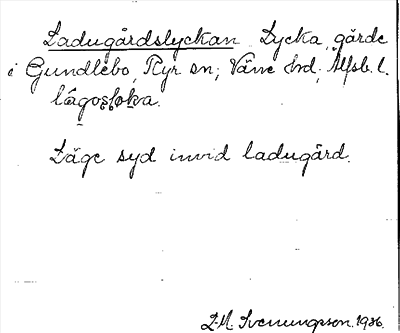 Ladugårdslyckan Lycka, gärde
i Gundlebo, Ryr sn; Väne hrd; Älfsb. l.
Läge syd invid ladugård.
L-M. Svenungsson. 1936.